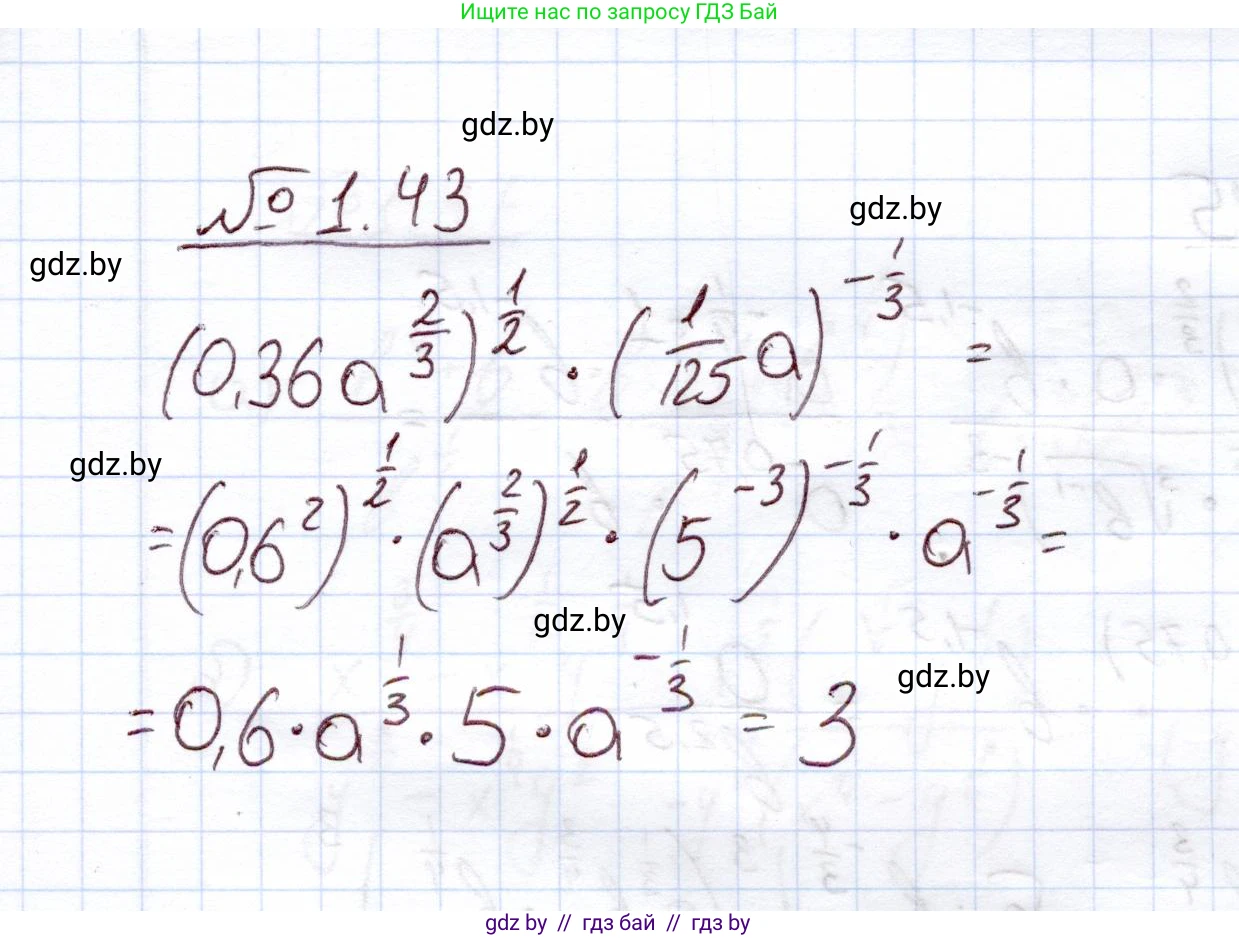 Ищите нас по запросу ГДЗ Бай
gdz.by
№ 1.43
gdz.by
gdz.by
(0,36a^(2/3))^(1/2) · (1/125 a)^(-1/3) =
gdz.by
=(0,6²)^(1/2) · (a^(2/3))^(1/2) · (5^(-3))^(-1/3) · a^(-1/3) =
gdz.by
gdz.by
= 0,6 · a^(1/3) · 5 · a^(-1/3) = 3
gdz.by // гдз бай // гдз by